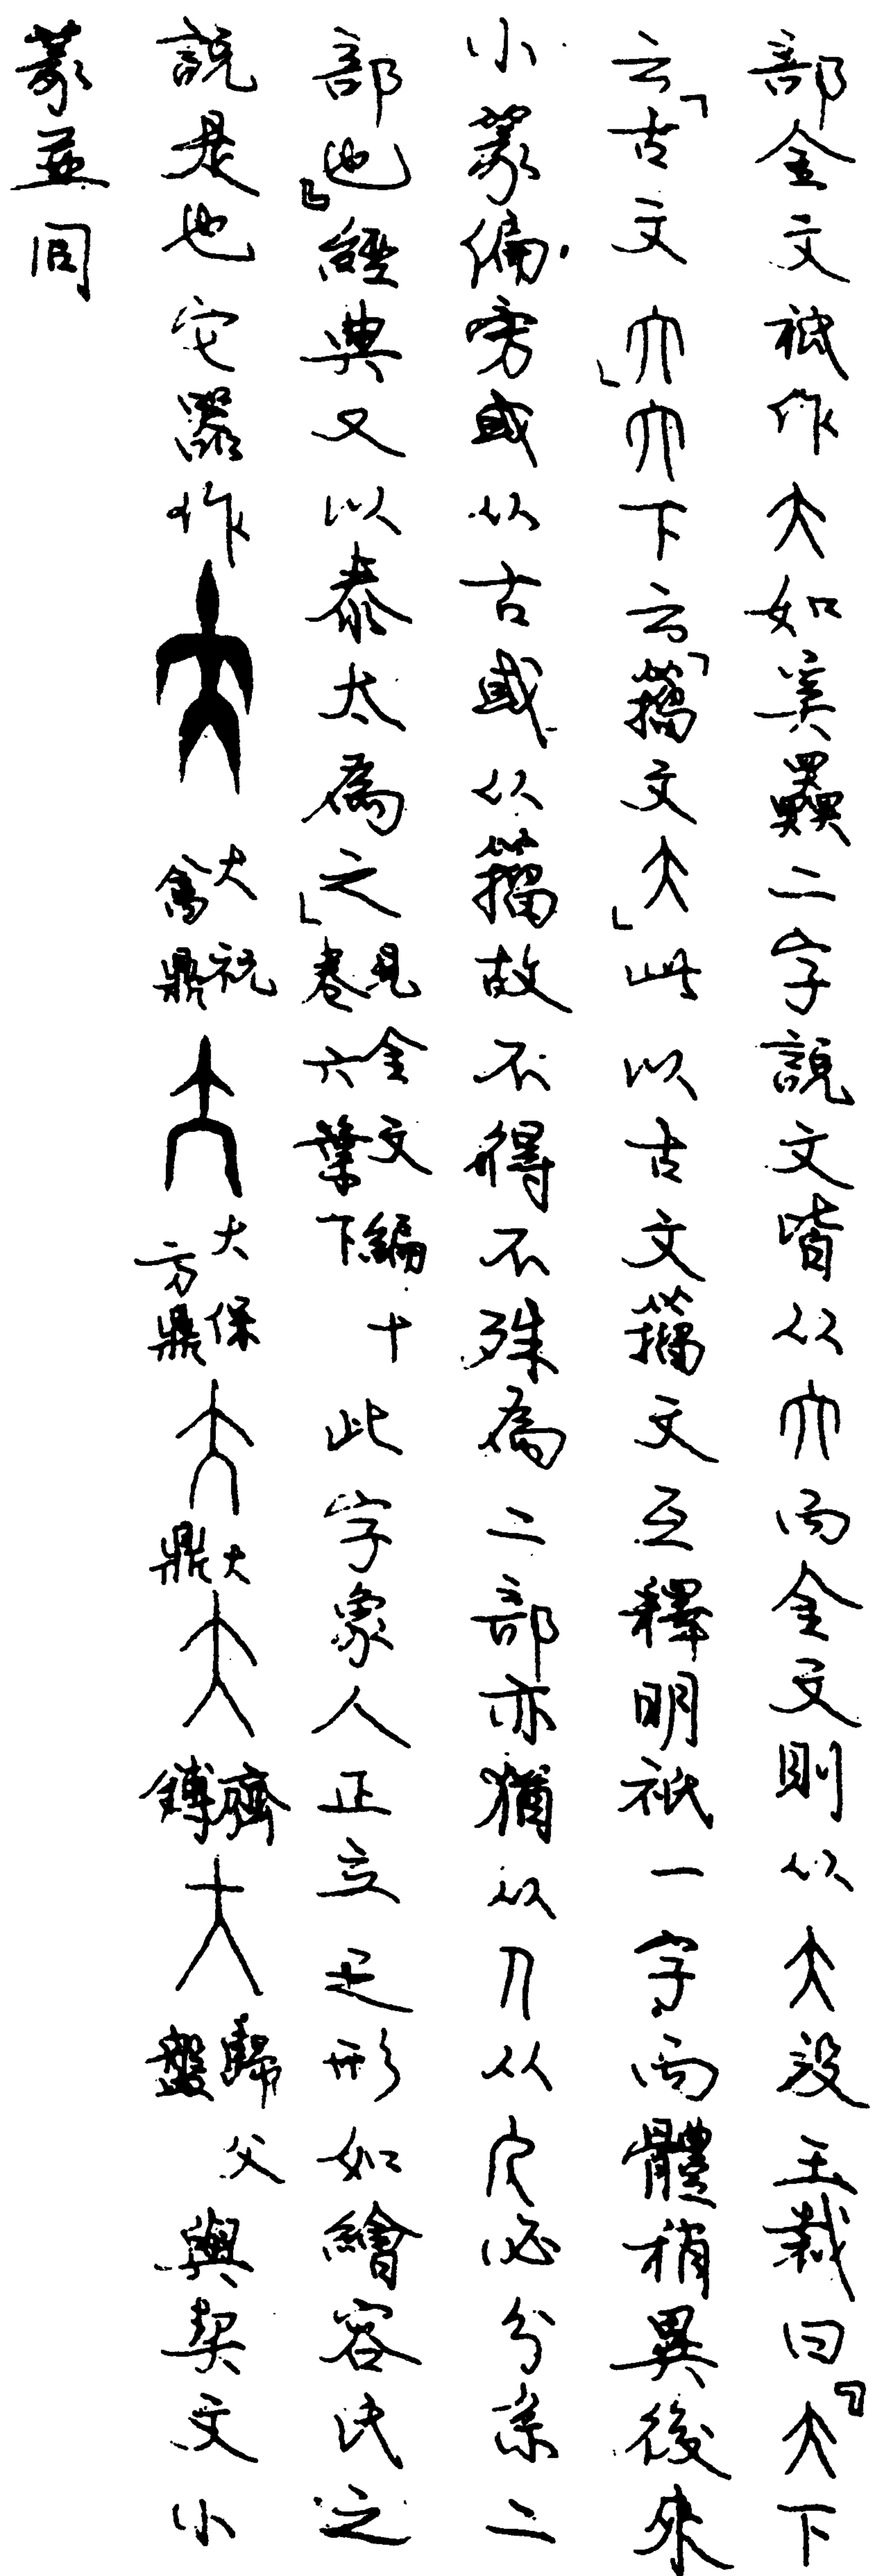 部金文祗作大如奚奰二字說文皆从亣而金文則从大段玉裁曰『大下
云「古文亣」亣下云「籀文大」此以古文籀文互釋明祗一字而體稍異後來
小篆偏旁或从古或从籀故不得不殊為二部亦猶从人从儿必分系二
部也』經典又以泰太為之」見金文編十卷六葉下此字象人正立之形如繪容氏之
說是也它器作大大祝禽鼎大大保方鼎大大鼎大齊鎛大歸父盤與契文小
篆並同